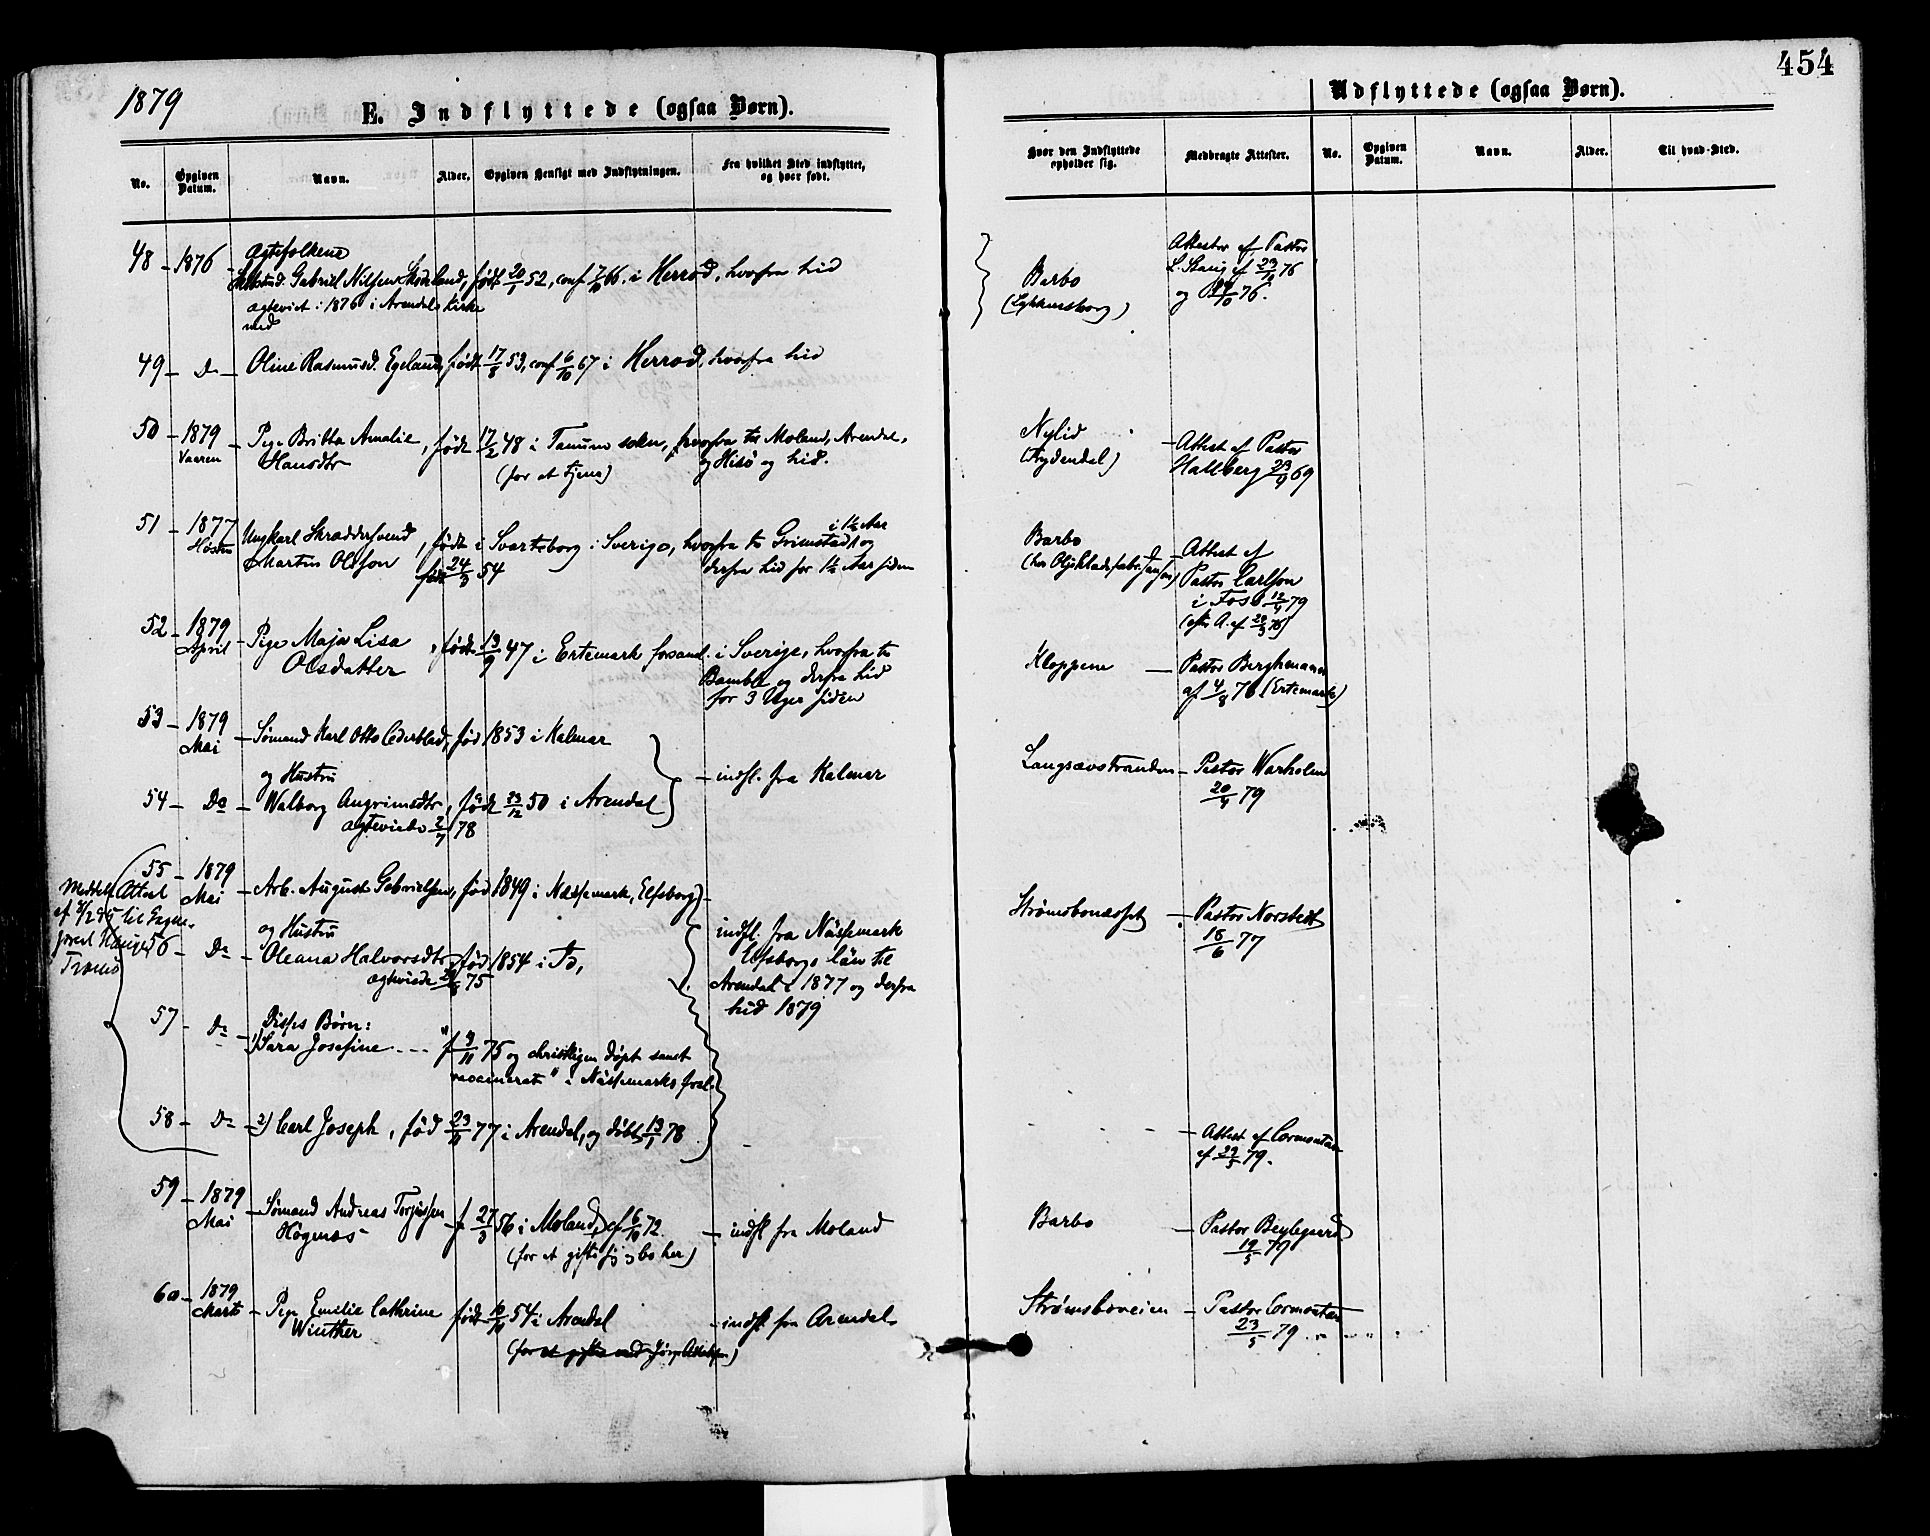 454
1879
E. Indflyttede (ogsaa Børn).
Udflyttede (ogsaa Børn).
No. Opgiven Datum. Navn. Alder. Opgiven Hensigt med Indflytningen. Fra hvilket Sted indflyttet, og hvor født. Hvor den Indflyttede opholder sig. Medbragte Attester. No. Opgiven Datum. Navn. Alder. Til hvad Sted.
48 - 1876 - Ægtefolkene
Gabriel Nilsen født 20/1 52, conf. 7/10 66. i Herrod, hvorfra hid
agteviet i 1876 i Arendals Kirke
med
Barbo
Attester af Pastor
L. Stang af 23/10 76
og 76.
49 - Do - Oline Rasmusd. Egeland, født 17/5 53, conf. 6/10 67 i Herrod, hvorfra hid
50 - 1879 - Pige Britta Amalie, født 17/2 48 i Tanum sokn, hvorfra til Moland, Arendal,
Vaaren Hansdtr (for at tjene) og Hisø og hid.
Nylid
(Frydendal)
Attest af Pastor
Hallberg 23/9 69
51 - 1877 Ungkarl Skræddersvend, født i Svarteborg i Sverige, hvorfra til Grimstad og
i 1½ Aar
Høsten Martin Olsson født 24/3 54 derfra hid for 1½ Aar siden
Barbo
- Attest af
Pastor Carlson
i Foss 12/4 79
52 - 1879 - Pige Maja Lisa, født 13/9 47 i Ertemark forsaml. i Sverige, hvorfra til
April Olsdatter Bamble og derfra hid
for 3 Uger siden
Kloppene - Pastor Berghmann
af 4/8 76 (Ertemark)
53 - 1879 - Sømand Karl Otto Cederblad, fød 1853 i Kalmar
Mai
og Hustru
- indfl. fra Kalmar
Langsævstranden - Pastor Warholm
20/4 79
54 - Do - Walborg Angrimsdtr, født 23/12 50 i Arendal
agteviede 2/7 78
55 - 1879 - Arb. August Gabrielsen, fød 1849 i Næssemark, Elfsborg -
Mai
Meddelt Attest
og Hustru
56 - Do - Oleana Halvorsdtr, fød 1854 i Do,
agteviede 75
indfl. fra Nässemark
Elfsborgs län til
Arendal i 1877 og derfra
hid 1879
Strømsbonæsset - Pastor Norstedt
18/6 77
57 - Do - Disses Børn:
1) Sara Josefine - - - " f. 9/11 75 og christligen döpt samt
vaccinerat" i Nässemarks
58 - Do - 2) Carl Joseph, fød 23/11 77 i Arendal, og döbt 13/1 78
- Attest af Cormontan
af 29/5 79.
59 - 1879 - Sømand Andreas Torjussen f. 27/3 56 i Moland, cf. 6/10 72. - indfl fra Moland
Mai Høgenæs (for at gifte sig og bo her)
Barbo - Pastor Beylegaard
19/5 79
60 - 1879 - Pige Emilie Cathrine født 16/11 54 i Arendal - indfl fra Arendal.
Marts Winther
Strømsboveien - Pastor Cormontan
23/5 79